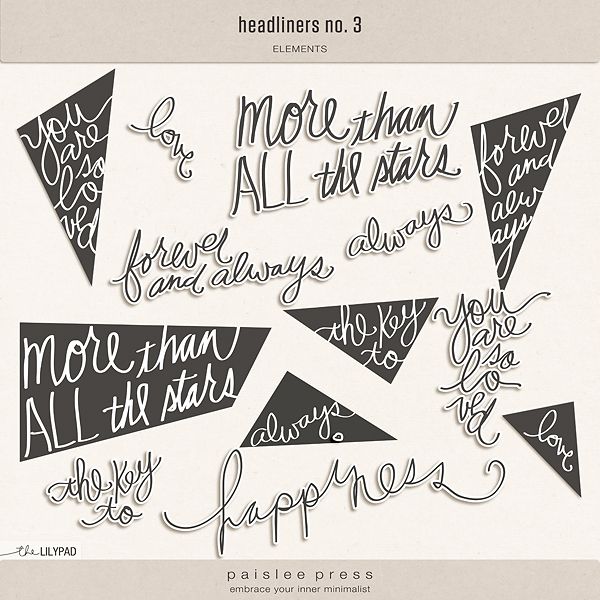 headliners no. 3
ELEMENTS
you
are
so
lo
ved
love
more than
ALL the stars
forever
and
alw
ays
forever
and always
always
more than
ALL the stars
the key
to
you
are
so
lo
ved
always
love
the key
to
happyness
the LILYPAD
paislee press
embrace your inner minimalist